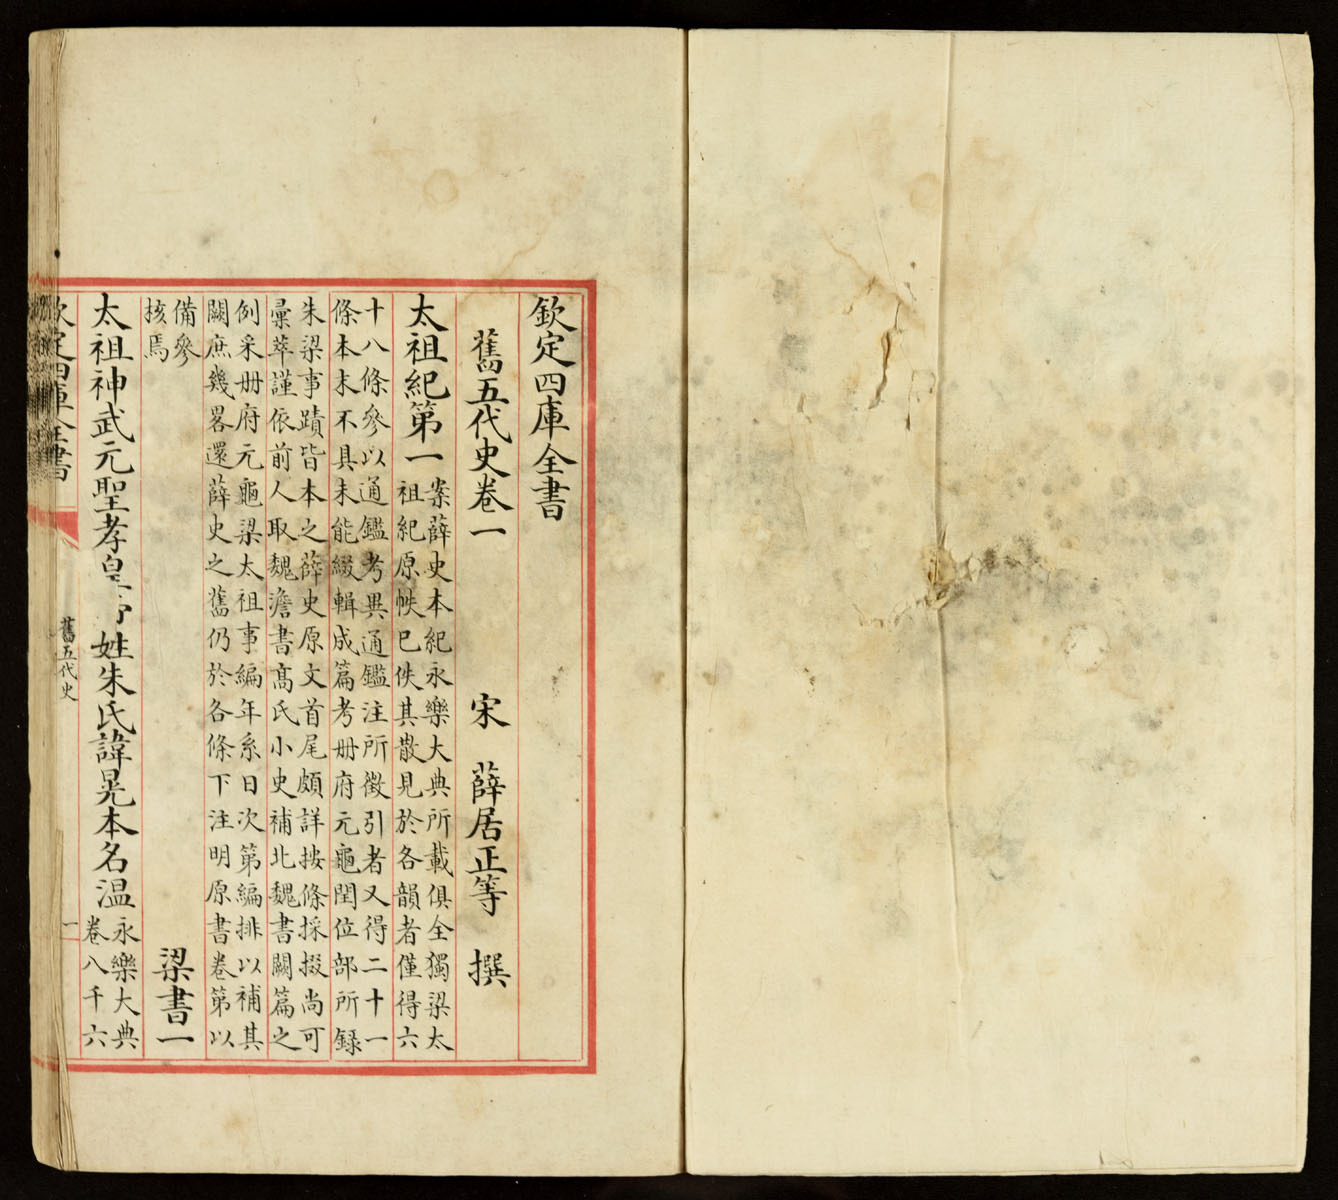 欽定四庫全書
舊五代史卷一
宋 薛居正等 撰
太祖紀第一
案薛史本紀永樂大典所載俱全獨梁太
祖紀原帙已佚其散見於各韻者僅得六
十八條參以通鑑考異通鑑注所徵引者又得二十一
條本末不具未能綴輯成篇考冊府元龜閏位部所録
朱梁事蹟皆本之薛史原文首尾頗詳按條採掇尚可
彙萃謹依前人取魏澹書高氏小史補北魏書闕篇之
例采冊府元龜梁太祖事編年系日次第編排以補其
闕庶幾畧還薛史之舊仍於各條下注明原書卷第以
備參
核焉
梁書一
太祖神武元聖孝皇帝姓朱氏諱晃本名温
永樂大典
卷八千六
欽定四庫全書
舊五代史
一